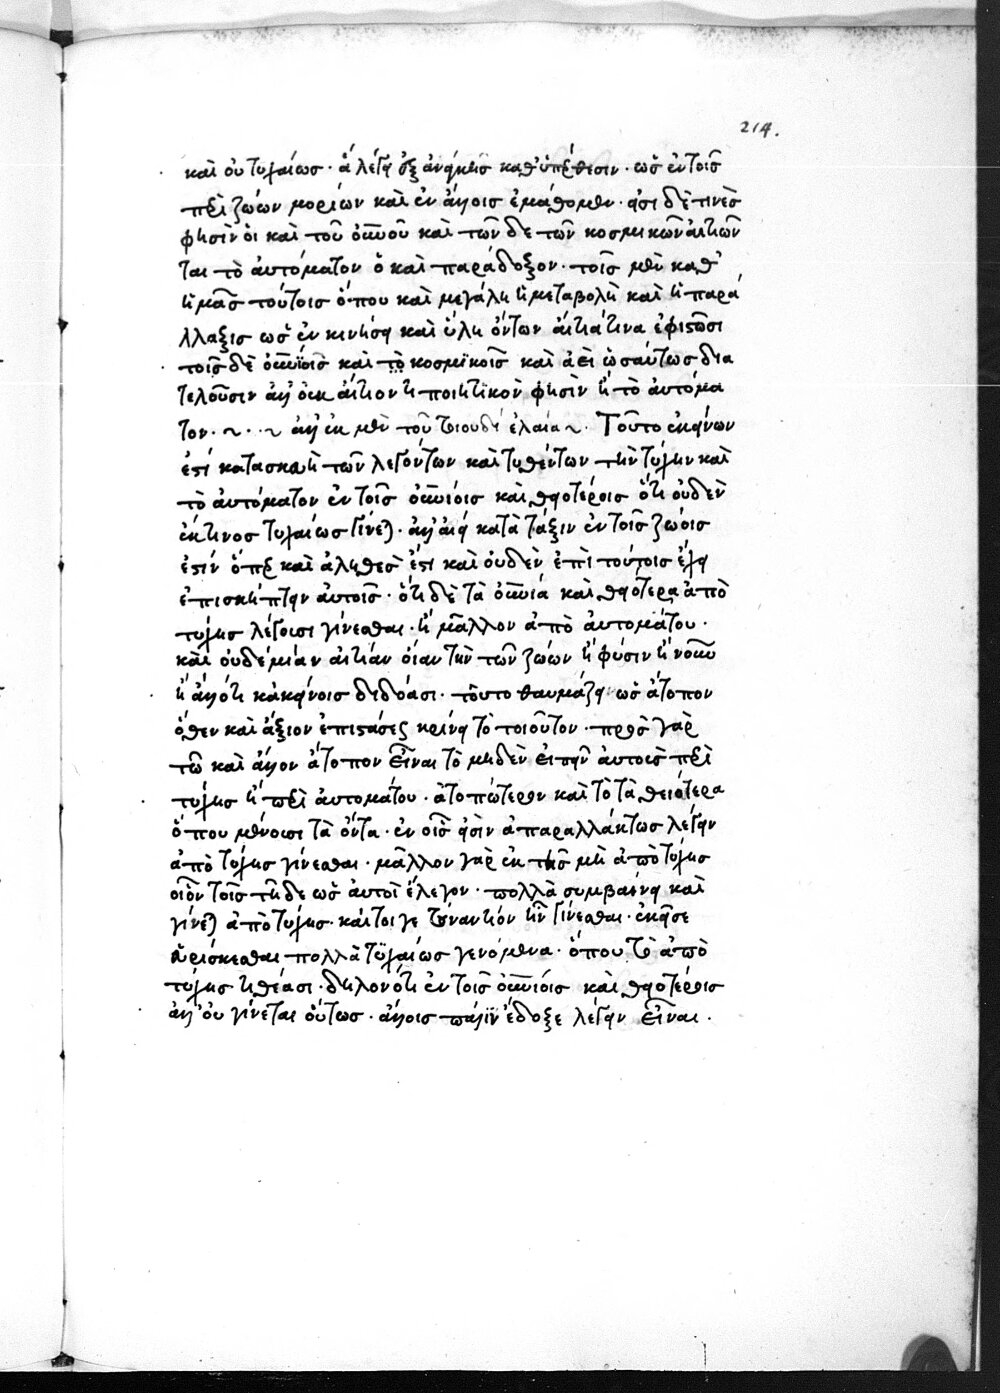 214.
καὶ οὐ τυχαίως · ἃ λέγει ἐξ ἀνάγκης καθ' ὑπόθεσιν · ὡς ἐν τοῖς
περὶ ζώων μορίων καὶ ἐν ἄλλοις ἐμάθομεν · εἰσὶ δὲ τινὲς
φησὶν οἳ καὶ τοῦ οὐνοῦ καὶ τῶν δε τῶν κοσμικῶν αἰτιῶν
ται τὸ αὐτόματον ὃ καὶ παράδοξον · τοῖς μὲν καθ'
ἡμᾶς τούτοις ὅπου καὶ μεγάλη ἡ μεταβολὴ καὶ ἡ παρά
λλαξις ὡς ἐν κινήσει καὶ ὕλη ὄντων αἰτιά τινα ἐφιστῶσι
τοῖς δὲ οὐνίοις καὶ τοῖς κοσμικοῖς καὶ ἀεὶ ὡσαύτως δια
τελοῦσιν ἀλλ' οὐκ αἴτιον ἢ ποιητικὸν φησὶν ἢ τὸ αὐτόμα
τον · ~ · · ~ ἀλλ' ἐκ μὲν τοῦ τοιουδὶ ἐλαία ~ · Τοῦτο ἐκείνων
ἐστὶ κατασκευὴ τῶν λεγόντων καὶ τιθέντων τὴν τύχην καὶ
τὸ αὐτόματον ἐν τοῖς οὐνίοις καὶ θειοτέροις ὅτι οὐδὲν
ἔκ τινος τυχαίως γίνεται · ἀλλ' ἀεὶ κατὰ τάξιν ἐν τοῖς ζώοις
ἐστίν ὅπερ καὶ ἀληθὲς ἐστι καὶ οὐδὲν ἐπὶ τούτοις ἔχει
ἐπισκήπτειν αὐτοῖς · ὅτι δὲ τὰ οὐνια καὶ θειότερα ἀπὸ
τύχης λέγουσι γίνεσθαι · ἢ μᾶλλον ἀπὸ αὐτομάτου ·
καὶ οὐδεμίαν αἰτίαν οἵαν τὴν τῶν ζώων ἢ φύσιν ἢ νοῦν
ἢ ἄλλό τι κἀκείνοις διδόασι · τοῦτο θαυμάζει ὡς ἄτοπον
ὅθεν καὶ ἄξιον ἐπιστάσεως κρίνει τὸ τοιοῦτον · πρὸς γὰρ
τῶ καὶ ἄλλον ἄτοπον εἶναι τὸ μηδὲν εἰπεῖν αὐτοὺς περὶ
τύχης ἢ περὶ αὐτομάτου · ἀτοπώτερον καὶ τὸ τὰ θειότερα
ὅπου μένουσι τὰ ὄντα · ἐν οἷς εἰσὶν ἀπαραλλάκτως λέγειν
ἀπὸ τύχης γίνεσθαι · μᾶλλον γὰρ ἐκ τῆς μὴ ἀπὸ τύχης
οἷον τοῖς τῆδε ὡς αὐτοὶ ἔλεγον · πολλὰ συμβαίνει καὶ
γίνεται ἀπὸ τύχης · καίτοι γε τοὐναντίον ἦν γίνεσθαι · ἐκεῖσε
εὑρίσκεσθαι πολλὰ τυχαίως γενόμενα · ὅπου τὸ ἀπὸ
τύχης τιθέασι · δηλονότι ἐν τοῖς οὐνίοις καὶ θειοτέροις
ἀλλ' οὐ γίνεται οὕτως · ἄλλοις πάλιν ἔδοξε λέγειν εἶναι ·